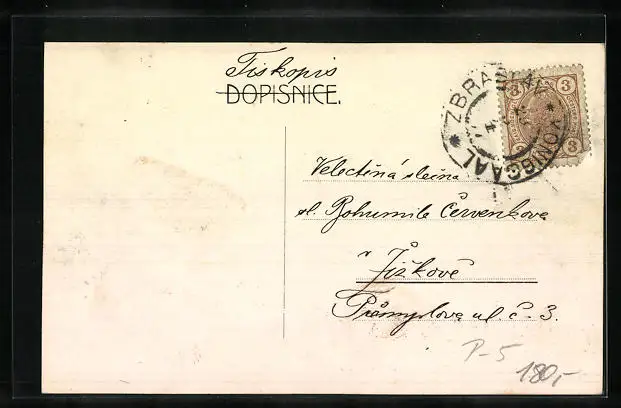 Tiskopis
DOPISNICE.
ZBRASLAV
KÖNIGSAAL
3 3
3 3
Velectěná slečna
sl. Bohumila Červenkova
v Žižkově
Přemyslova ul. č. 3.
P-5
180,-